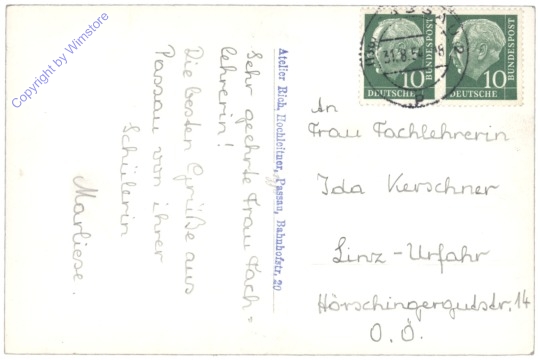 Copyright by Wimstore
Sehr geehrte Frau Fach=
lehrerin!
Die besten Grüße aus
Passau von ihrer
Schülerin
Marliese.
Atelier Rich. Hochleitner, Passau, Bahnhofstr. 20
10
DEUTSCHE
BUNDESPOST
10
DEUTSCHE
BUNDESPOST
An
Frau Fachlehrerin
Ida Kerschner
Linz-Urfahr
Hörschingergutstr. 14
O.Ö.